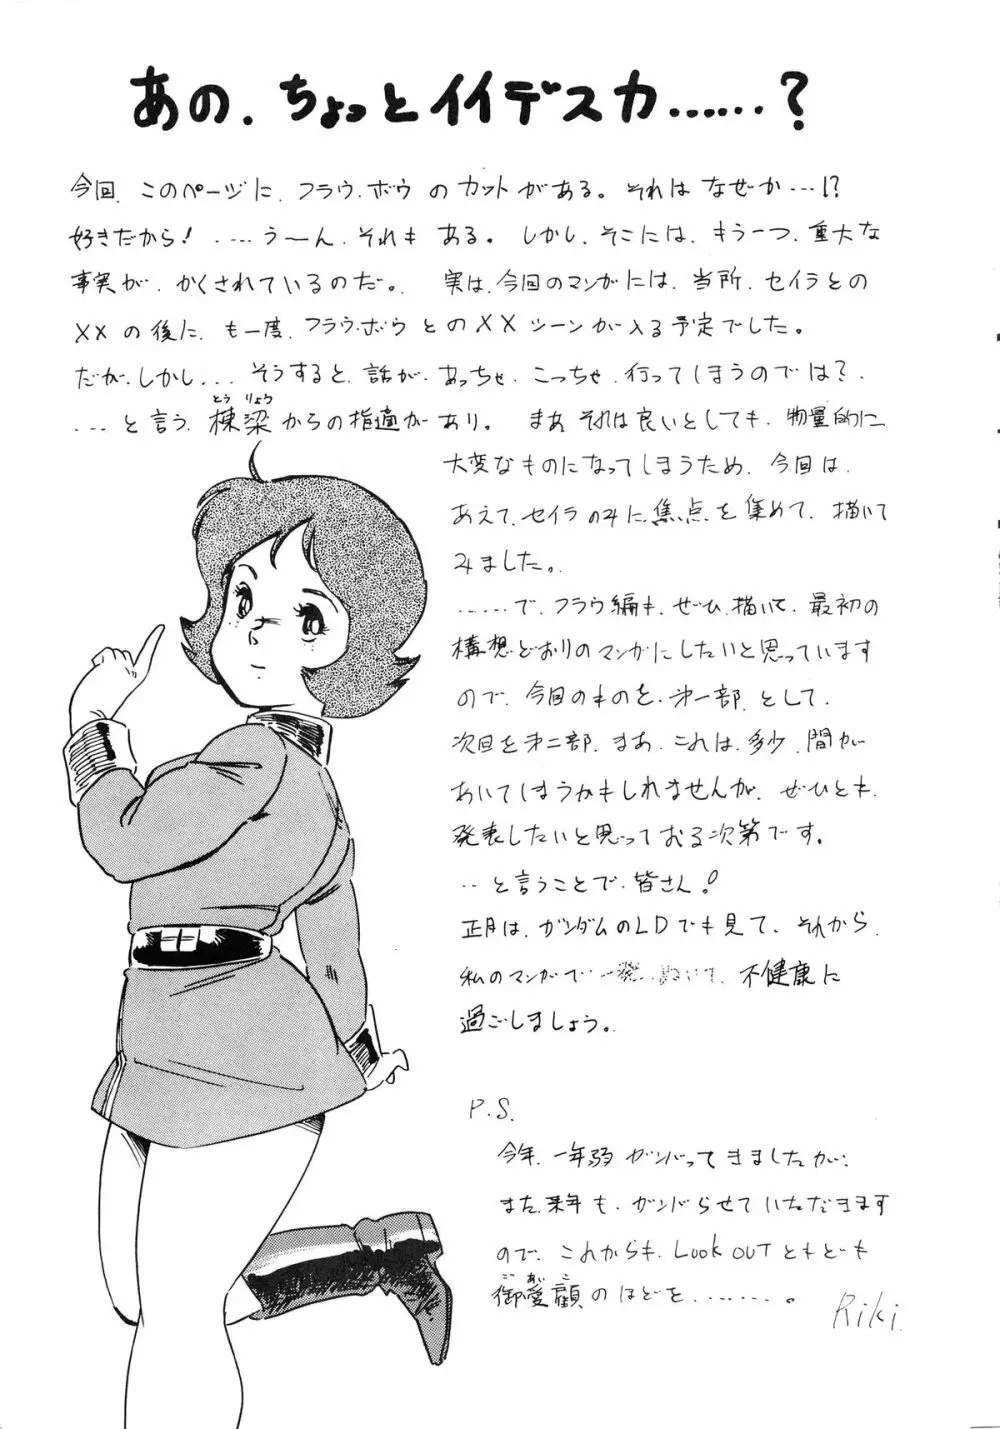 あの、ちょっとイイデスカ……?
今回、このページに、フラウ・ボウのカットがある。それはなぜか…!?
好きだから! ‥‥う〜ん、それもある。しかし、そこには、もう一つ、重大な
事実が、かくされているのだ。 実は、今回のマンガには、当所、セイラとの
××の後に、も一度、フラウ・ボウとの××シーンが入る予定でした。
だが、しかし… そうすると、話が、あっちゃ、こっちゃ、行ってしまうのでは?
とう りょう
…と言う、棟梁からの指適があり。 まあ、それは良いとしても、物量的に
大変なものになってしまうため、今回は、
あえて、セイラのみに焦点を集めて、描いて
みました。
……で、フラウ編も、ぜひ、描いて、最初の
構想どおりのマンガにしたいと思っています
ので、今回のものを、第一部、として、
次回を第二部、まあ、これは、多少、間が
あいてしまうかもしれませんが、ぜひとも、
発表したいと思っておる次第です。
‥と言うことで、皆さん!
正月は、ガンダムのLDでも見て、それから、
私のマンガで一発、ぬいて、不健康に
過ごしましょう。
P.S.
今年、一年弱ガンバってきましたが、
また、来年も、ガンバらせていただきます
ので、これからも、Look OUTともども
ご あい こ
御愛顧のほどを……。
Riki.